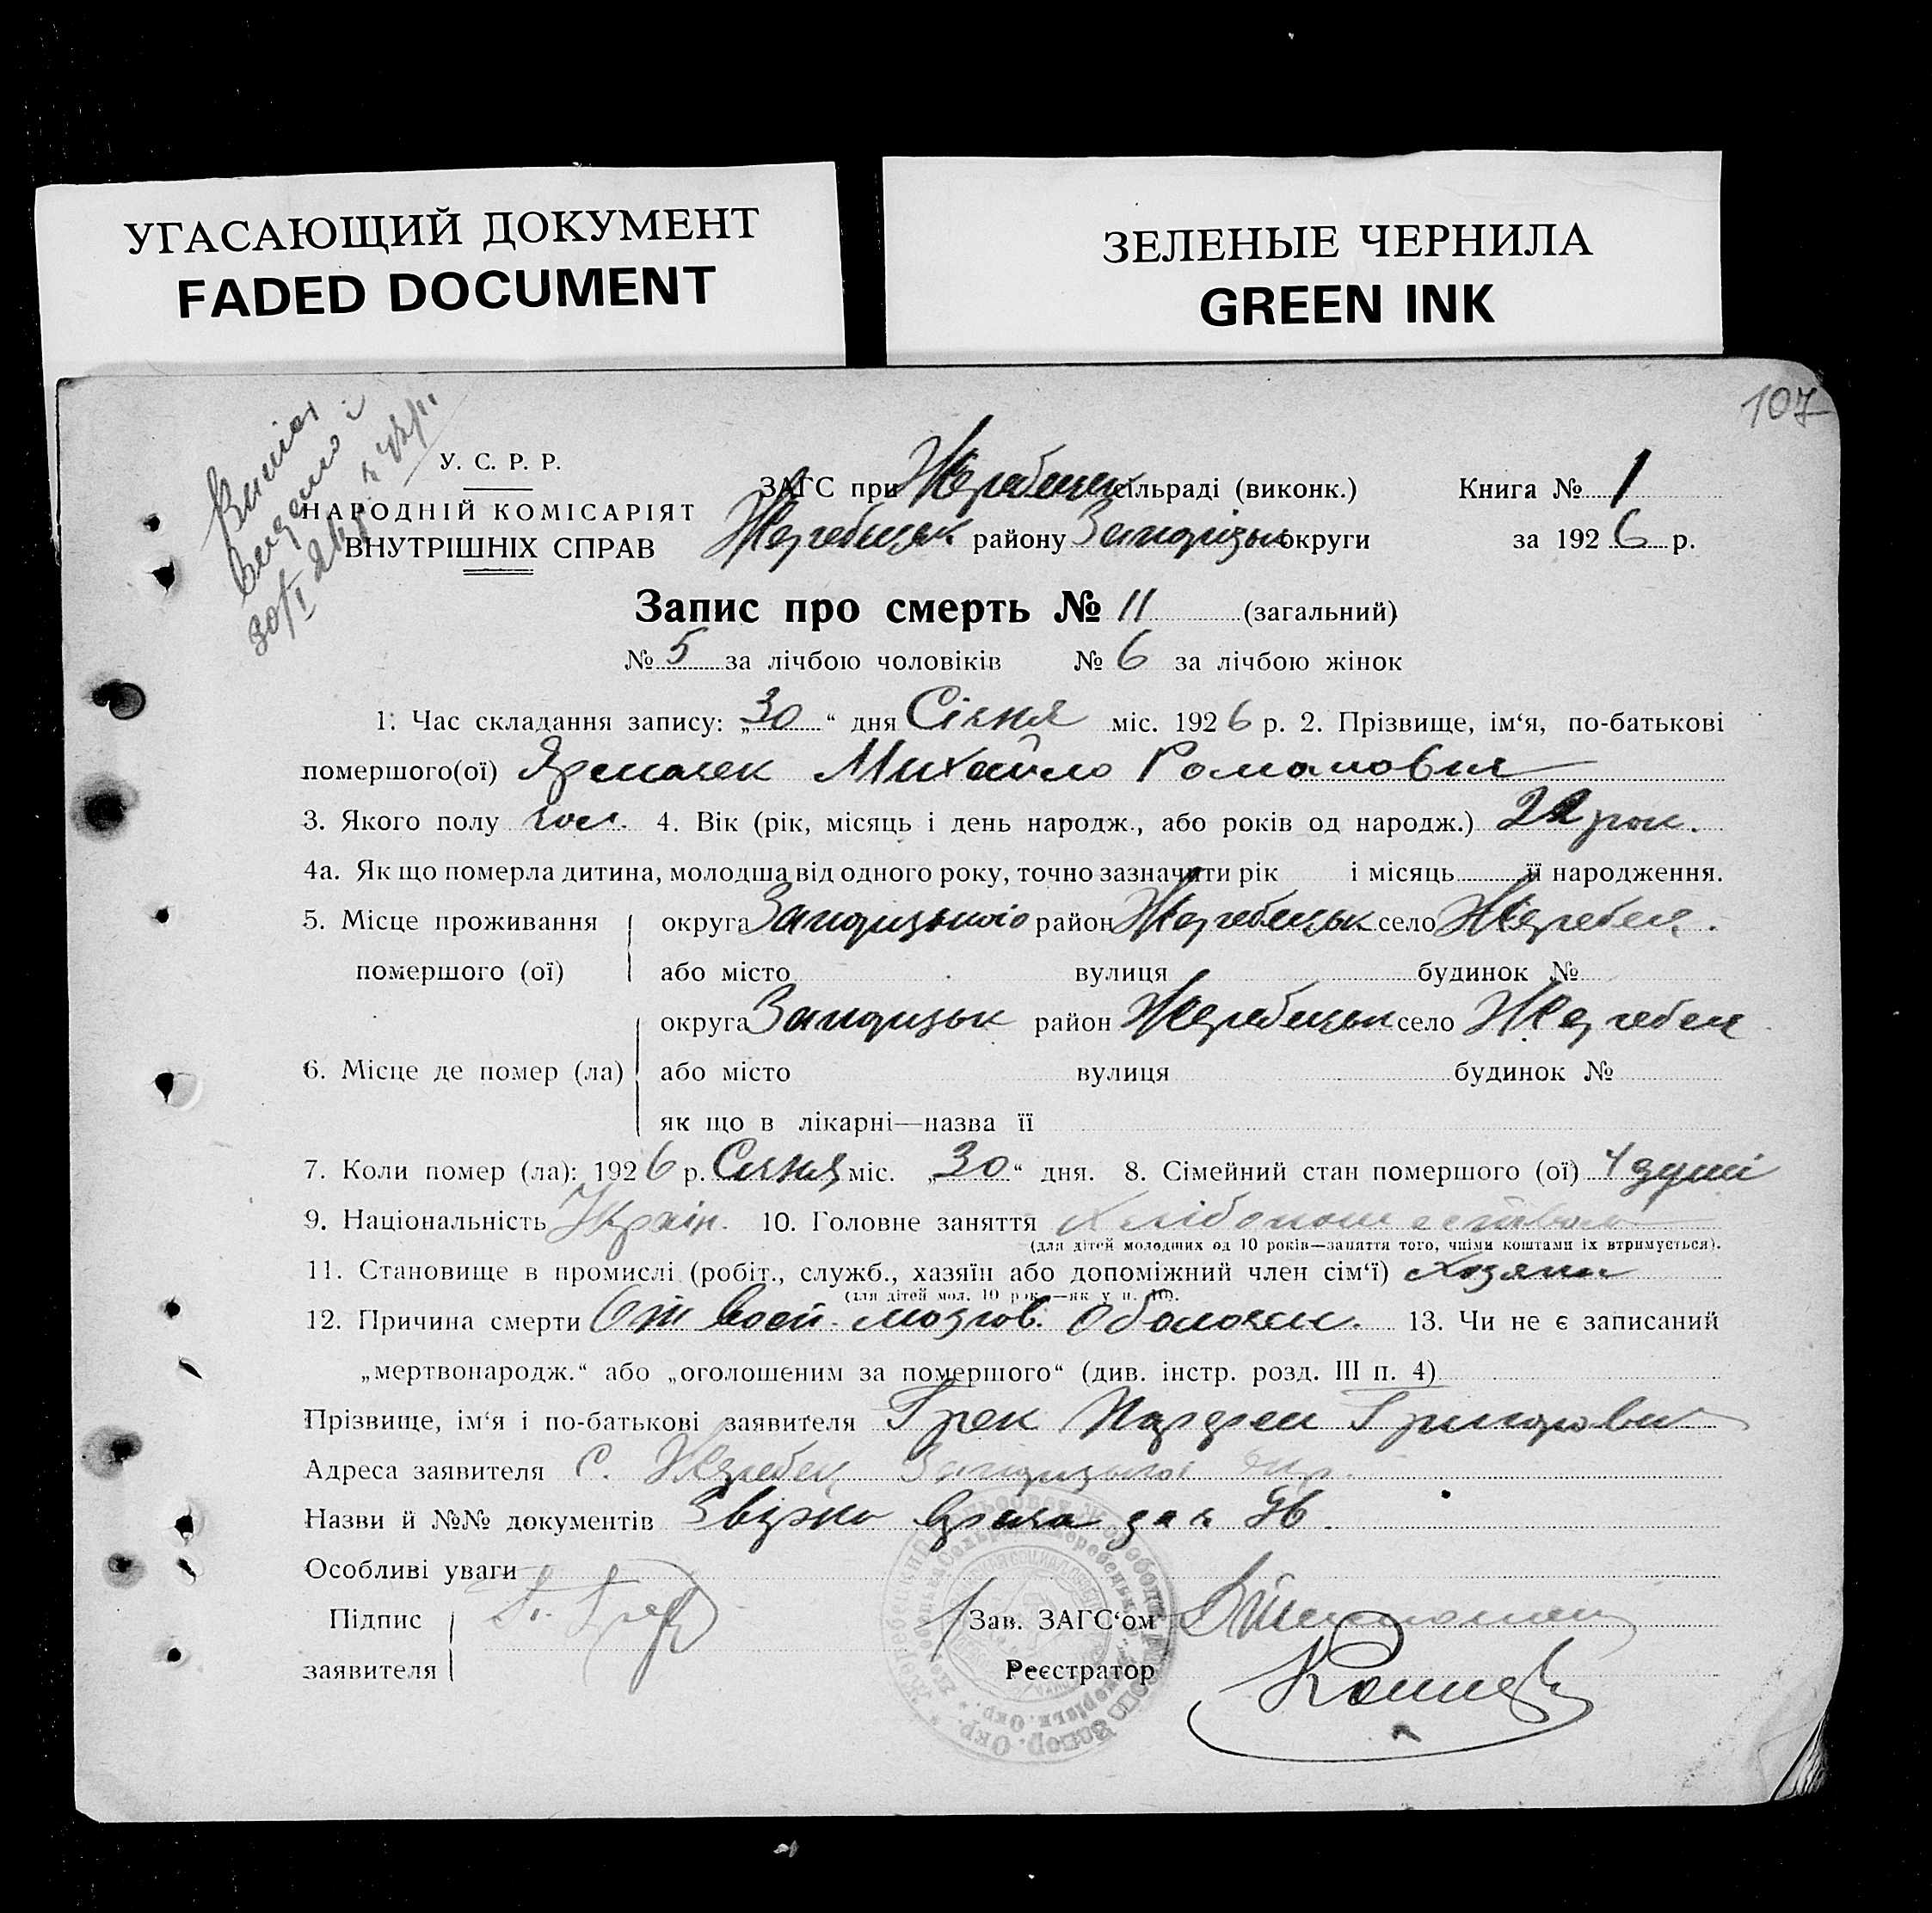 УГАСАЮЩИЙ ДОКУМЕНТ
FADED DOCUMENT
ЗЕЛЕНЫЕ ЧЕРНИЛА
GREEN INK
107
30/I 26 р.
У. С. Р. Р.
НАРОДНІЙ КОМІСАРІЯТ
ВНУТРІШНІХ СПРАВ
ЗАГС при Жеребецьк сільраді (виконк.) Книга № 1
Жеребецьк району Запорізьк округи за 1926 р.
Запис про смерть № 11 (загальний)
№ 5 за лічбою чоловіків № 6 за лічбою жінок
1. Час складання запису: „30“ дня Січня міс. 1926 р. 2. Прізвище, ім‘я, по-батькові
помершого(ої) Михайло Романович
3. Якого полу чол. 4. Вік (рік, місяць і день народж., або років од народж.) 22 рок.
4а. Як що померла дитина, молодша від одного року, точно зазначити рік і місяць її народження.
5. Місце проживання округа Запоризького район Жеребецьк село Жеребец.
помершого (ої) або місто вулиця будинок №
округа Запоризьк район Жеребецьк село Жеребец
6. Місце де помер (ла) або місто вулиця будинок №
як що в лікарні—назва її
7. Коли помер (ла): 1926 р. Січня міс. „30“ дня. 8. Сімейний стан помершого (ої) 4 душі
9. Національність Украін. 10. Головне заняття
(для дітей молодших од 10 років—заняття того, чиїми коштами їх втримується).
11. Становище в промислі (робіт., служб., хазяїн або допоміжний член сім‘ї) хозяин
(для дітей мол. 10 рок.—як у п. 10).
12. Причина смерти От восп. мозгов. оболочки. 13. Чи не є записаний
„мертвонародж.“ або „оголошеним за помершого“ (див. інстр. розд. III п. 4)
Прізвище, ім‘я і по-батькові заявителя Грек Григорович
Адреса заявителя С. Жеребец Запоризької окр.
Назви й №№ документів
Особливі уваги
Підпис Зав. ЗАГС‘ом
заявителя Реєстратор